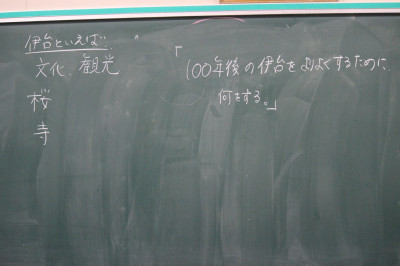 伊台といえば
文化、観光
桜
寺
「100年後の伊台をよりよくするために、
何をする。」